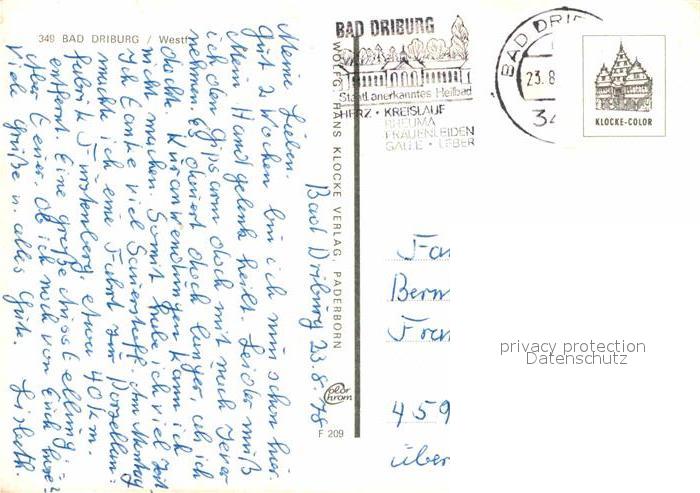 349 BAD DRIBURG / Westf
Bad Driburg 23.8.78
Meine Lieben.
Gut 2 Wochen bin ich nun schon hier.
Mein Handgelenk heilt. Leider muß
ich den Gipsarm doch mit nach Jever
nehmen. Es dauert doch länger, als ich
dachte. Kuranwendungen kann ich
nicht machen. Somit habe ich viel Zeit.
Ich tanke viel Sauerstoff. Am Montag
machte ich eine Fahrt zur Porzellan=
fabrik Fürstenberg, etwa 40 km.
entfernt. Eine große Ausstellung,
Aber teuer. Ob ich noch von Euch höre?
Viele Grüße u. alles Gute. Lisbeth.
WOLFG. HANS KLOCKE VERLAG, PADERBORN
color
chrom
F 209
BAD DRIBURG
Staatl anerkanntes Heilbad
HERZ • KREISLAUF
RHEUMA
FRAUENLEIDEN
GALLE • LEBER
BAD DRI
23.8
34
KLOCKE-COLOR
Fa
Bern
Fra
459
über
privacy protection
Datenschutz